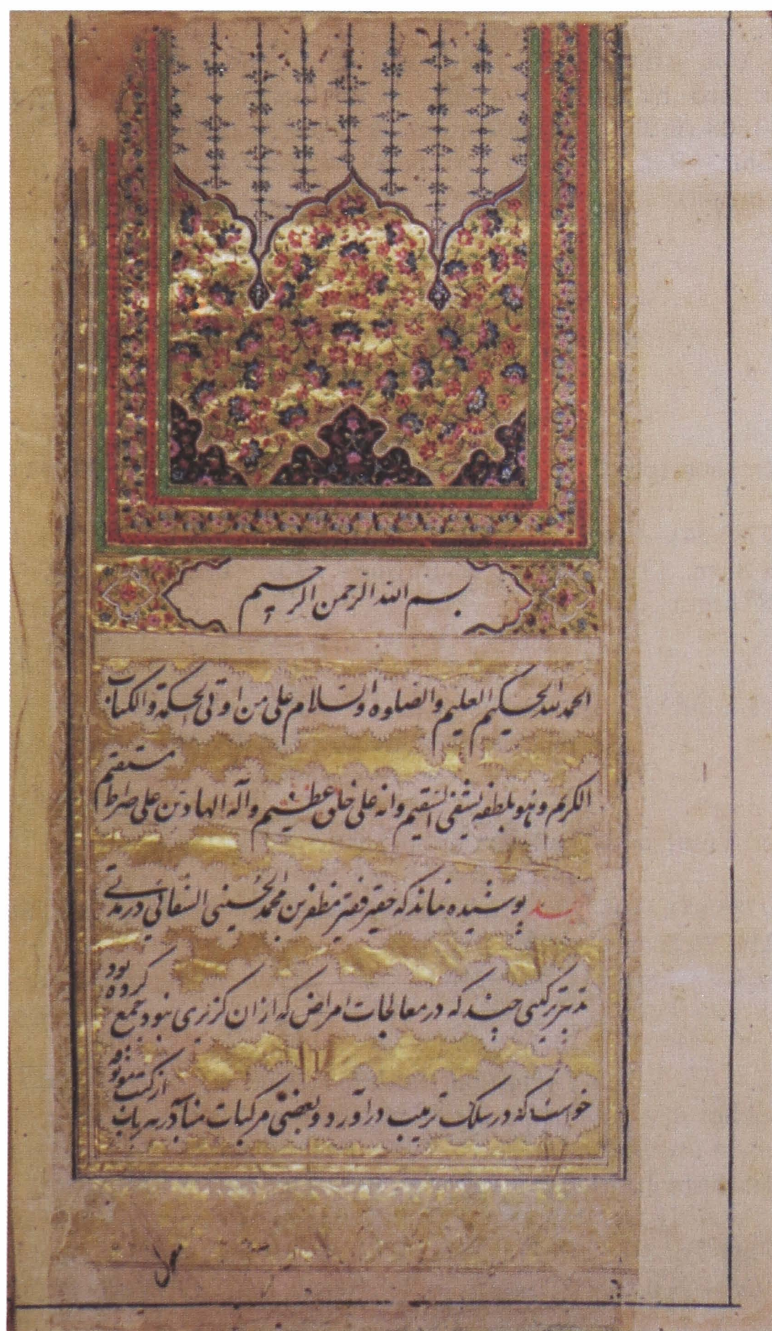 بسم الله الرحمن الرحیم
الحمد لله الحکیم العلیم والصلوه والسلام علی من اوتی الحکمة والکتاب
الکریم وهو بلطفه یشفی السقیم وانه علی خلق عظیم وآله الهادین علی صراط مستقیم
پوشیده نماند که حقیر فقیر مظفر بن محمد الحسینی الشفائی در مدتی
مدید ترکیبی چند که در معالجات امراض که ازان گزیری نبود جمع کرده بود
خواست که در سلک ترتیب درآورد و بعضی مرکبات مناسب در هر باب از کتب